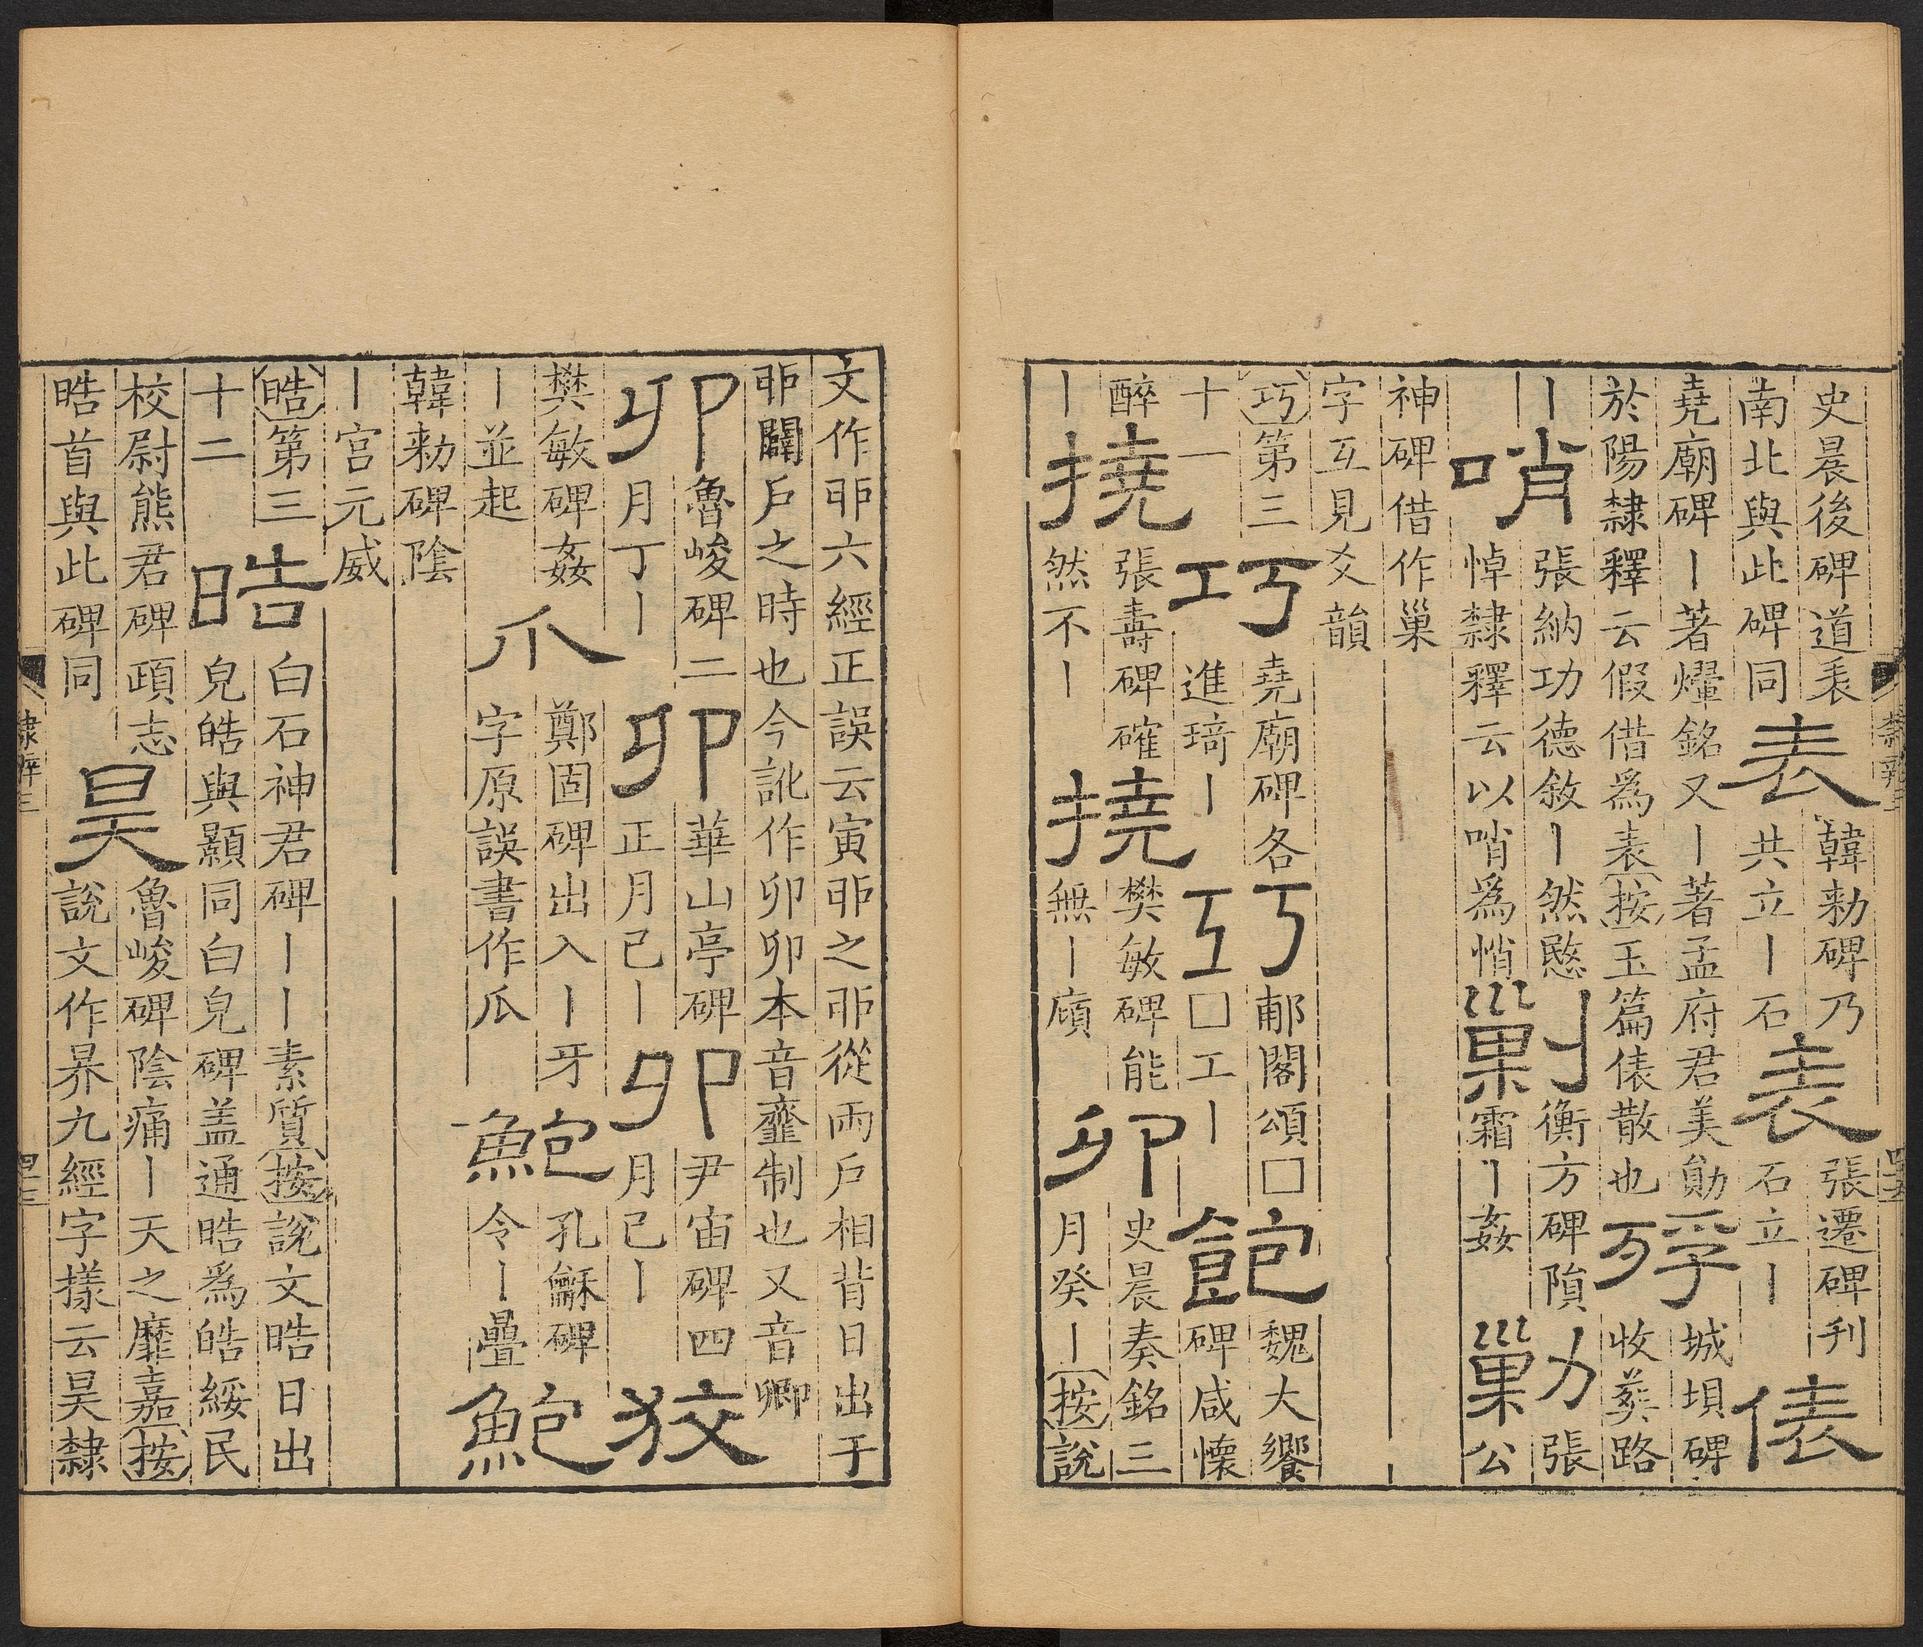 史晨後碑道表南北與此碑同 表 韓勑碑乃共立丨石 表 張遷碑刊石立丨 俵
堯廟碑丨著燿銘又丨著孟府君美勛於陽隸釋云假借爲表按玉篇俵散也 殍 城垻碑收葬路
丨 哨 張納功德敘丨然愍悼隸釋云以哨爲悄 剿 衡方碑隕霜丨姦 勦 張公
神碑借作巢字互見爻韻
巧第三十一 巧 堯廟碑各進琦丨 巧 郙閣頌□□工丨 飽 魏大饗碑咸懷
醉丨 撓 張壽碑確然不丨 撓 樊敏碑能無丨 卯 史晨奏銘三月癸丨按說
文作戼六經正誤云寅戼之戼從兩戶相背日出于戼闢戶之時也今訛作卯卯本音虀制也又音卿
卯 魯峻碑二月丁丨 卯 華山亭碑正月己丨 卯 尹宙碑四月己丨 狡
樊敏碑姦丨並起 爪 鄭固碑出入丨牙字原誤書作瓜 鮑 孔龢碑令丨疊 鮑
韓勑碑陰丨宮元威
皓第三十二 晧 白石神君碑丨丨素質按說文晧日出皃皓與顥同白皃碑盖通晧爲皓綏民
校尉熊君碑頙志晧首與此碑同 昊 魯峻碑陰痛丨天之靡嘉按說文作昦九經字樣云昊隸
隸辨三